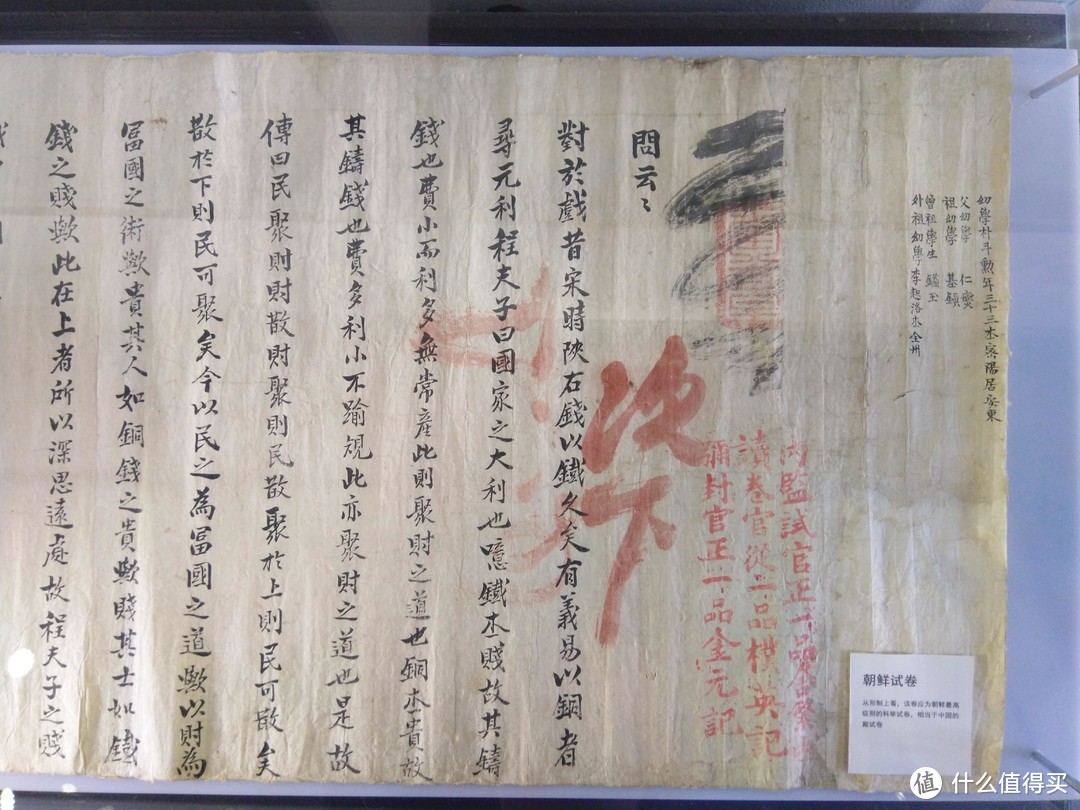 幼學朴斗勲年三十三本密陽居安東
父幼學 仁
祖幼學 基
曾祖學生 玉
外祖幼學李起洛本全州
內監試官正一品
讀卷官從二品 英記
彌封官正一品金元記
次下
問云〻
對於戲昔宋時陝右錢以鐵久矣有義易以銅者
尋元利程夫子曰國家之大利也噫鐵本賤故其鑄
錢也費小而利多無常產此則聚財之道也銅本貴故
其鑄錢也費多利小不踰規此亦聚財之道也是故
傳曰民聚則財散財聚則民散聚於上則民可散矣
散於下則民可聚矣今以民之為富國之道歟以財為
富國之術歟貴其人如銅錢之貴歟賤其士如鐵
錢之賤歟此在上者所以深思遠慮故程夫子之賤
朝鲜试卷
从形制上看，该卷应为朝鲜最高
级别的科举试卷，相当于中国的
殿试卷
值 什么值得买